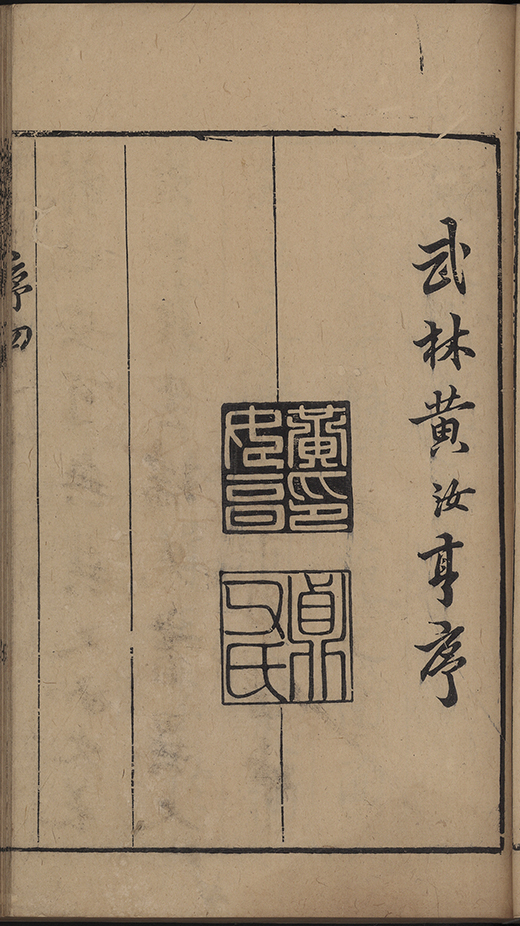 武林黄汝亨序
黃印
汝亨
貞
父氏
序四